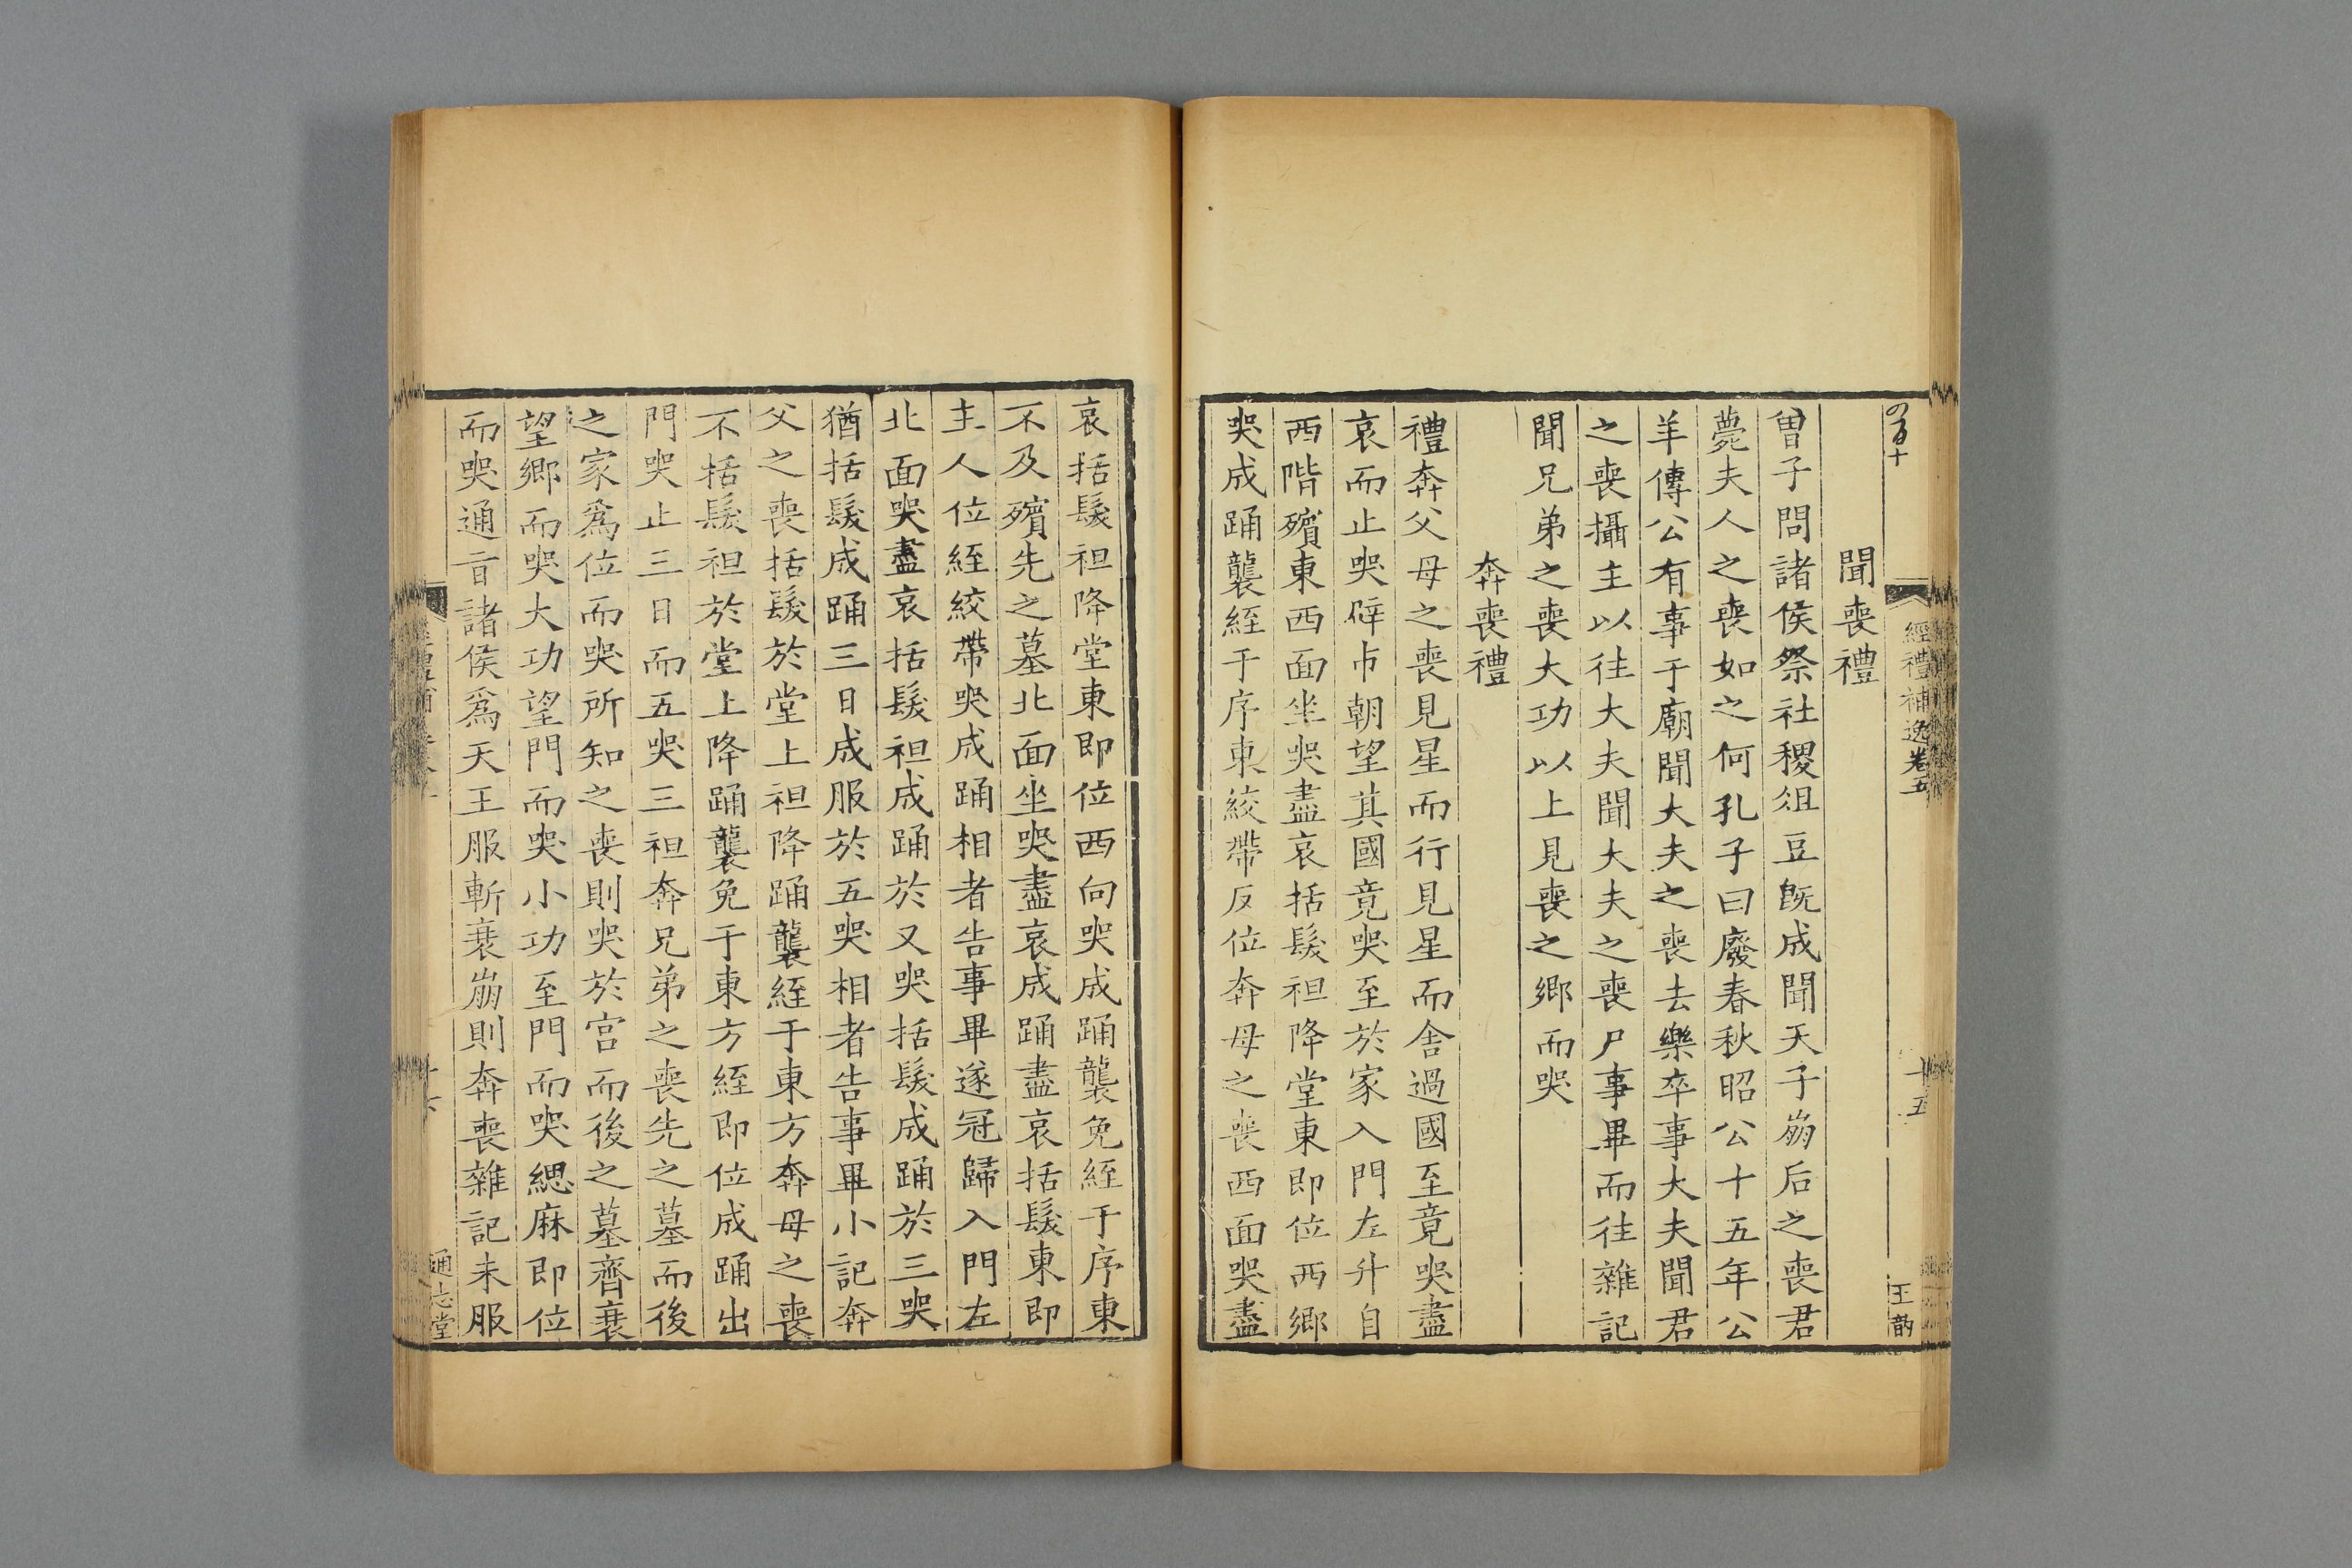 經禮補逸卷五
十五
聞喪禮
曾子問諸侯祭社稷俎豆旣成聞天子崩后之喪君
薨夫人之喪如之何孔子曰廢春秋昭公十五年公
羊傳公有事于廟聞大夫之喪去樂卒事大夫聞君
之喪攝主以往大夫聞大夫之喪尸事畢而往雜記
聞兄弟之喪大功以上見喪之鄉而哭
奔喪禮
禮奔父母之喪見星而行見星而舍過國至竟哭盡
哀而止哭辟市朝望其國竟哭至於家入門左升自
西階殯東西面坐哭盡哀括髮袒降堂東即位西鄉
哭成踊襲絰于序東絞帶反位奔母之喪西面哭盡
哀括髮袒降堂東即位西向哭成踊襲免絰于序東
不及殯先之墓北面坐哭盡哀成踊盡哀括髮東即
主人位絰絞帶哭成踊相者告事畢遂冠歸入門左
北面哭盡哀括髮袒成踊於又哭括髮成踊於三哭
猶括髮成踊三日成服於五哭相者告事畢小記奔
父之喪括髮於堂上袒降踊襲絰于東方奔母之喪
不括髮袒於堂上降踊襲免于東方絰即位成踊出
門哭止三日而五哭三袒奔兄弟之喪先之墓而後
之家爲位而哭所知之喪則哭於宮而後之墓齊衰
望鄉而哭大功望門而哭小功至門而哭緦麻即位
而哭通言諸侯爲天王服斬衰崩則奔喪雜記未服
通志堂